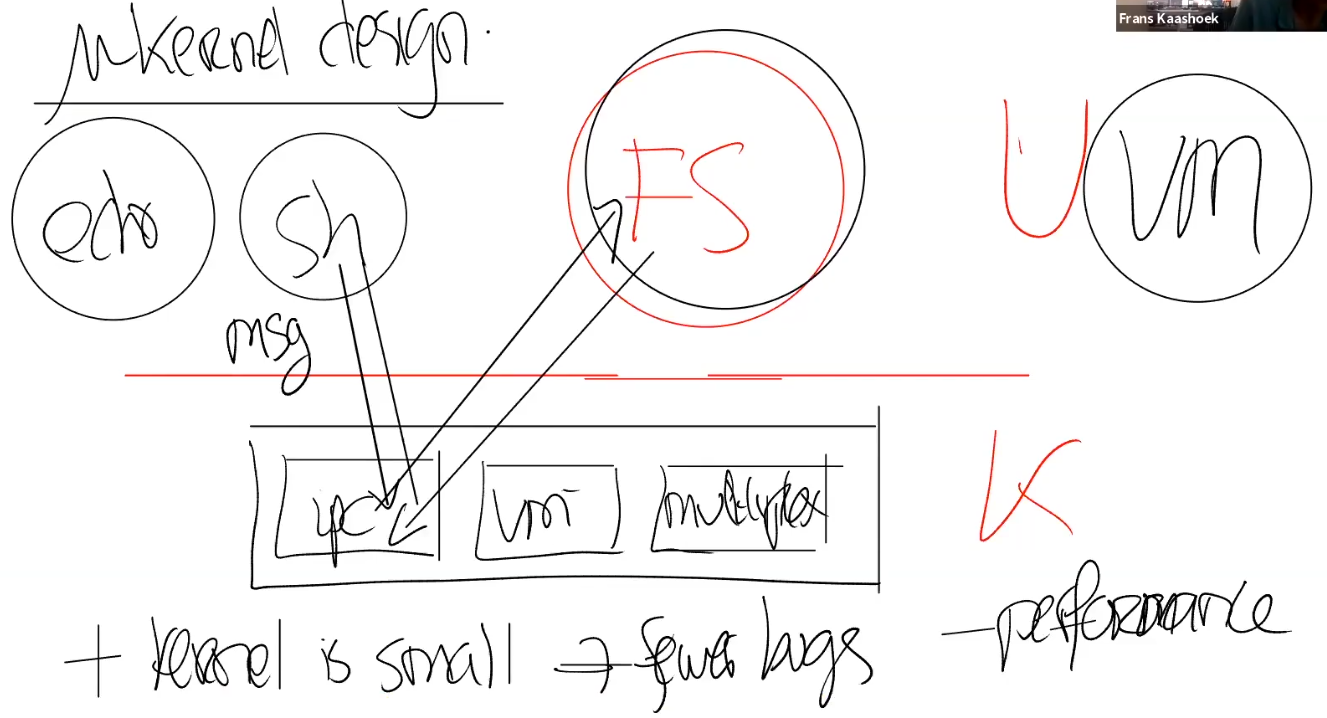 Frans Kaashoek
μkernel design.
echo
sh
FS
U
VM
msg
ipc
vm
multiplex
K
+ kernel is small → fewer bugs
- performance